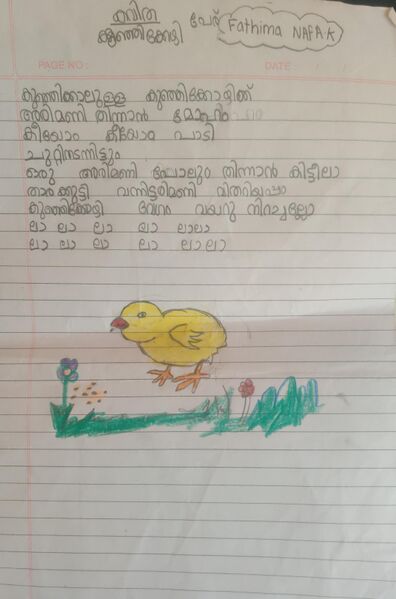 കവിത
കുഞ്ഞിക്കോഴി
പേര് Fathima NAFA K
PAGE NO :
DATE :
കുഞ്ഞിക്കാലുള്ള കുഞ്ഞിക്കോഴിക്ക്
അരിമണി തിന്നാൻ മോഹം
കീയോം കീയോം പാടി
ചുറ്റിനടന്നിട്ടും
ഒരു അരിമണി പോലും തിന്നാൻ കിട്ടീലാ
വന്നിട്ടരിമണി
കുഞ്ഞിക്കോഴി വേഗം വയറു നിറച്ചല്ലോ
ലാ ലാ ലാ ലാ ലാലാ
ലാ ലാ ലാ ലാ ലാലാ